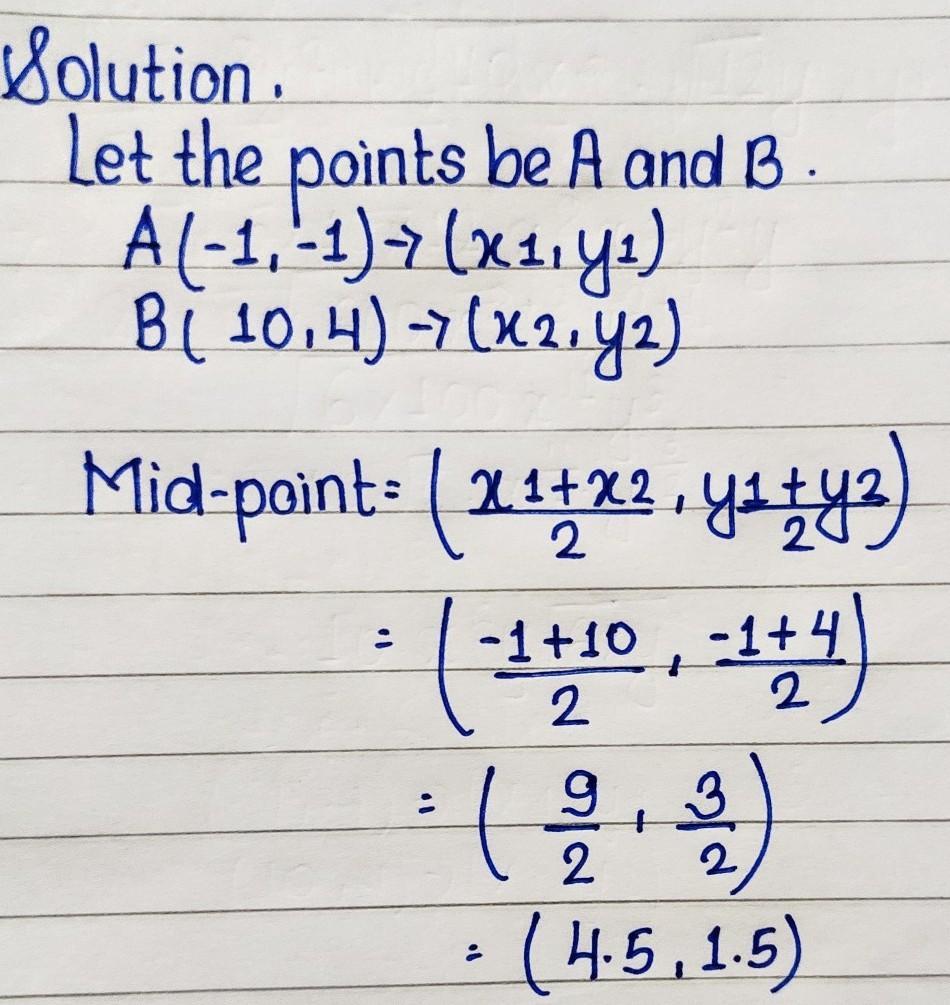 Solution.
Let the points be A and B.
A(-1,-1)→(x1,y1)
B(10,4)→(x2,y2)
Mid-point=(x1+x2/2,y1+y2/2)
=(-1+10/2,-1+4/2)
=(9/2,3/2)
=(4.5,1.5)